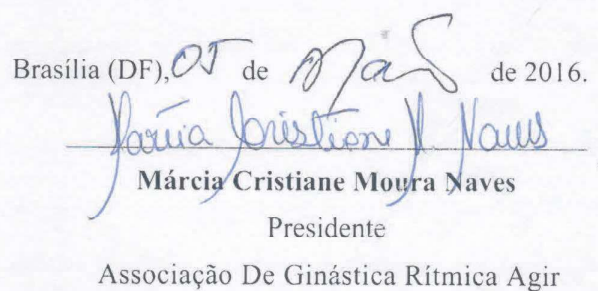 Brasília (DF), 05 de Maio de 2016.
Márcia Cristiane M Naves
Márcia Cristiane Moura Naves
Presidente
Associação De Ginástica Rítmica Agir